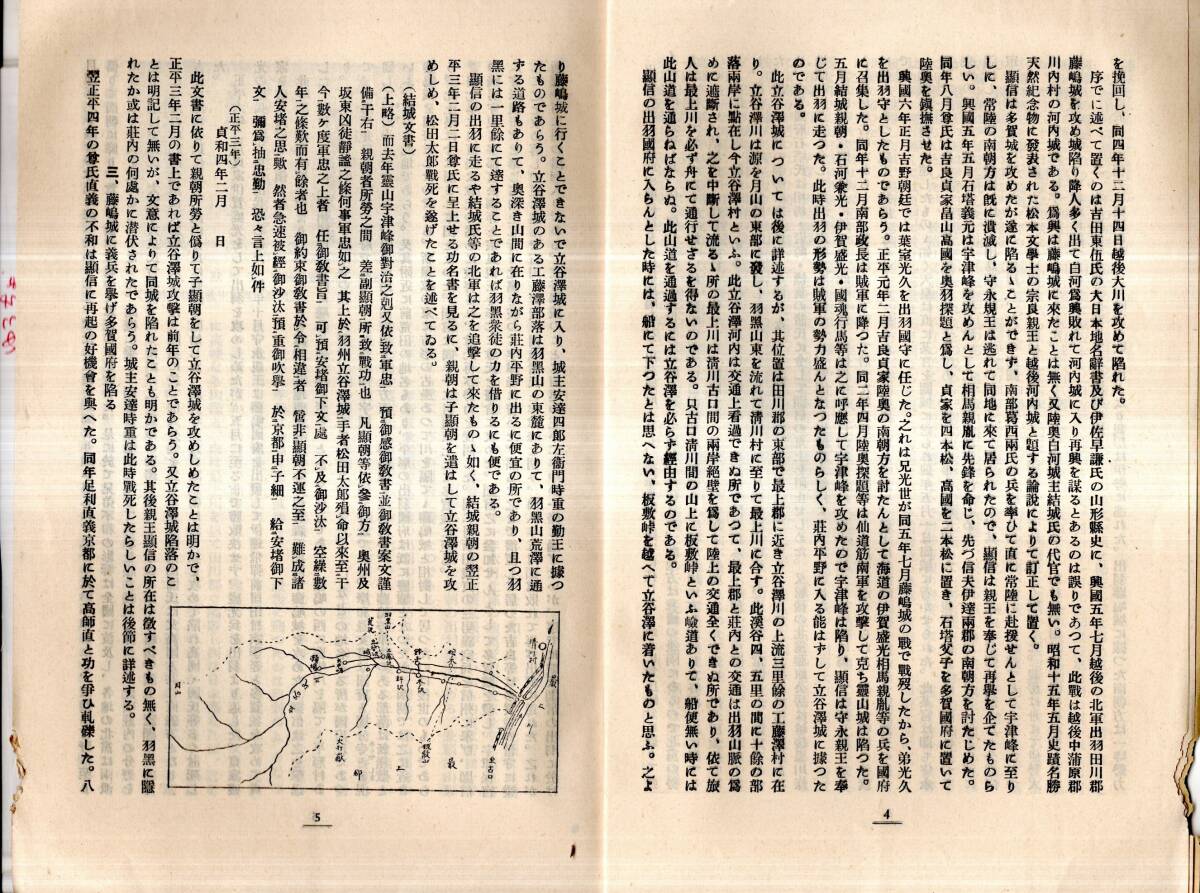 を挽回し、同四年十二月十四日越後大川を攻めて陥れた。
序でに述べて置くのは吉田東伍氏の大日本地名辭書及び伊佐早謙氏の山形縣史に、興國五年七月越後の北軍出羽田川郡
藤嶋城を攻め城陥り降人多く出て白河爲興敗れて河內城に入り再興を謀るとあるのは誤りであつて、此戰は越後中蒲原郡
川內村の河內城である。爲興は藤嶋城に來たことは無く又陸奥白河城主結城氏の代官でも無い。昭和十五年五月史蹟名勝
天然紀念物に發表された松本文學士の宗良親王と越後河內城と題する論說によりて訂正して置く。
顯信は多賀城を攻めたが遂に陥るゝことができず、南部葛西兩氏の兵を率ひて直に常陸に赴援せんとして宇津峰に至り
しに、常陸の南朝方は旣に潰滅し、守永規王は逃れて同地に來て居られたので、顯信は親王を奉じて再擧を企てたものら
しい。興國五年五月石塔義元は宇津峰を攻めんとして相馬親胤に先鋒を命じ、先づ信夫伊達兩郡の南朝方を討たじめた。
同年八月尊氏は吉良貞家畠山高國を奥羽探題と爲し、貞家を四本松、高國を二本松に置き、石塔父子を多賀國府に置いて
陸奥を鎭撫させた。
興國六年正月吉野朝廷では葉室光久を出羽國守に任じた。之れは兄光世が同五年七月藤嶋城の戰で戰歿したから、弟光久
を出羽守としたものであらう。正平元年二月吉良貞家陸奥の南朝方を討たんとして海道の伊賀盛光相馬親胤等の兵を國府
に召集した。同年十二月南部政長は賊軍に降つた。同二年四月陸奥探題等は仙道筋南軍を攻擊して克ち靈山城は陥つた。
五月結城親朝・石河兼光・伊賀盛光・國魂行馬等は之に呼應して宇津峰を攻めたので宇津峰は陥り、顯信は守永親王を奉
じて出羽に走つた。此時出羽の形勢は賊軍の勢力盛んとなつたものらしく、莊內平野に入る能はずして立谷澤城に據つた
のである。
此立谷澤城については後に詳述するが、其位置は田川郡の東部で最上郡に近き立谷澤川の上流三里餘の工藤澤村に在
り。立谷澤川は源を月山の東部に發し、羽黑山東を流れて淸川村に至りて最上川に合す。此溪谷四、五里の間に十餘の部
落兩岸に點在し今立谷澤村といふ。此立谷澤河內は交通上看過できぬ所であつて、最上郡と莊內との交通は出羽山脈の爲
めに遮斷され、之を中斷して流るゝ所の最上川は淸川古口間の兩岸絕壁を爲して陸上の交通全くできぬ所であり、依て旅
人は最上川を必ず舟にて通行せざるを得ないのである。只古口淸川間の山上に板敷峠といふ嶮道ありて、船便無い時には
此山道を通らねばならぬ。此山道を通過するには立谷澤を必らず經由するのである。
顯信の出羽國府に入らんとした時には、船にて下つたとは思へない、板敷峠を越へて立谷澤に着いたものと思ふ。之よ
4
り藤嶋城に行くことできないで立谷澤城に入り、城主安達四郎左衞門時重の勤王に據つ
たものであらう。立谷澤城のある工藤澤部落は羽黑山の東麓にありて、羽黑山荒澤に通
ずる道路もありて、奥深き山間に在りながら莊內平野に出るにも便宜の所であり、且つ羽
黑には一里餘にて達することであれば羽黑衆徒の力を借りるにも便である。
顯信の出羽に走るや結城氏等の北軍は之を追擊して來たものゝ如く、結城親朝の翌正
平三年二月二日尊氏に呈上せる功名書を見るに、親朝は子顯朝を遣はして立谷澤城を攻
めしめ、松田太郎戰死を遂げたことを述べてゐる。
(結城文書)
(上略)而去年靈山宇津峰御對治之刻又依致軍忠 預御感御敎書並御敎書案文謹
備于右 親朝者所勞之間 差副顯朝所致戰功也 凡顯朝等依參御方 奥州及
坂東凶徒靜謐之條何事軍忠如之 其上於羽州立谷澤城手者松田太郎殞命以來至于
今數ケ度軍忠之上者 任御敎書旨 可預安堵御下文處 不及御沙汰 空繰數
年之條歎而有餘者也 御約束御敎書於令相違者 啻非顯朝不運之至 難成諸
人安堵之思歟 然者急速被經御沙汰預重御吹擧 於京都申子細 給安堵御下
文 彌爲抽忠勤 恐々言上如件
(正平三年)
貞和四年二月 日
此文書に依りて親朝所勞と僞りて子顯朝をして立谷澤城を攻めしめたことは明かで、
正平三年二月の書上であれば立谷澤城攻擊は前年のことであらう。又立谷澤城陥落のこ
とは明記して無いが、文意によりて同城を陥れたことも明かである。其後親王顯信の所在は徵すべきもの無く、羽黑に隱
れたか或は莊內の何處かに潜伏されたであらう。城主安達時重は此時戰死したらしいことは後節に詳述する。
三、藤嶋城に義兵を擧げ多賀國府を陥る
翌正平四年の尊氏直義の不和は顯信に再起の好機會を與へた。同年足利直義京都に於て高師直と功を爭ひ軋轢した。八
月山
羽黑山
淸川村
最
上
郡
至古口
5